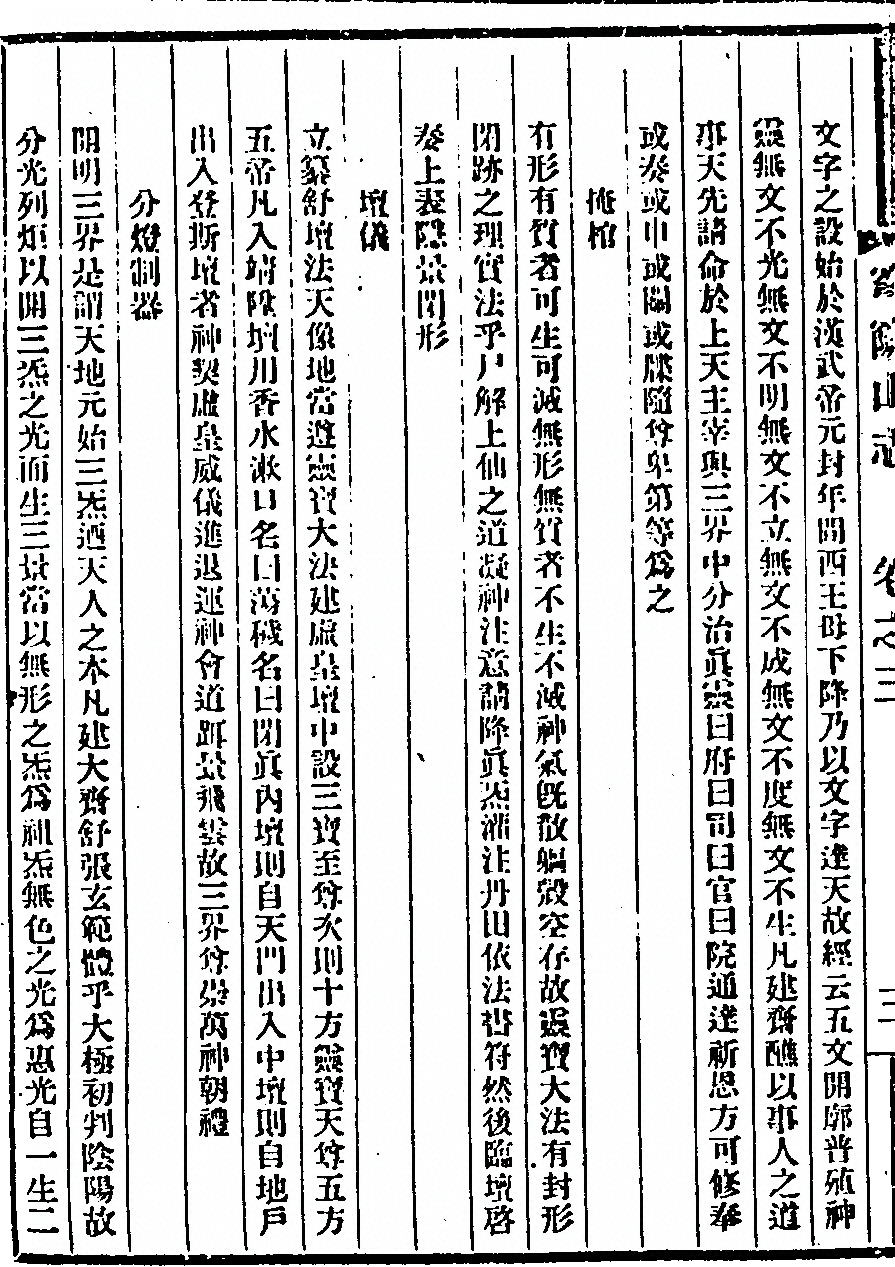 山志 卷之三
文字之設始於漢武帝元封年間西王母下降乃以文字達天故經云五文開廓普殖神
靈無文不光無文不明無文不立無文不成無文不度無文不生凡建齋醮以事人之道
事天先請命於上天主宰與三界中分治眞靈曰府曰司曰官曰院通達祈恩方可修奉
或奏或申或關或牒隨尊卑第等爲之
掩棺
有形有質者可生可滅無形無質者不生不滅神氣旣散軀殼空存故靈寶大法有封形
閉跡之理實法乎尸解上仙之道凝神注意請降眞炁灌注丹田依法書符然後臨壇啓
奏上表隱景閉形
壇儀
立纂舒壇法天像地當遵靈寶大法建虛皇壇中設三寶至尊次則十方靈寶天尊五方
五帝凡入端陛壇用香水漱口名曰蕩穢名曰閉眞內壇則自天門出入中壇則自地戶
出入登斯壇者神契虛皇威儀進退運神會道躡景飛雲故三界尊崇萬神朝禮
分燈制器
開明三界是謂天地元始三炁迺天人之本凡建大齋舒張玄範體乎大極初判陰陽故
分光列炬以開三炁之光而生三景當以無形之炁爲祖炁無色之光爲惠光自一生二